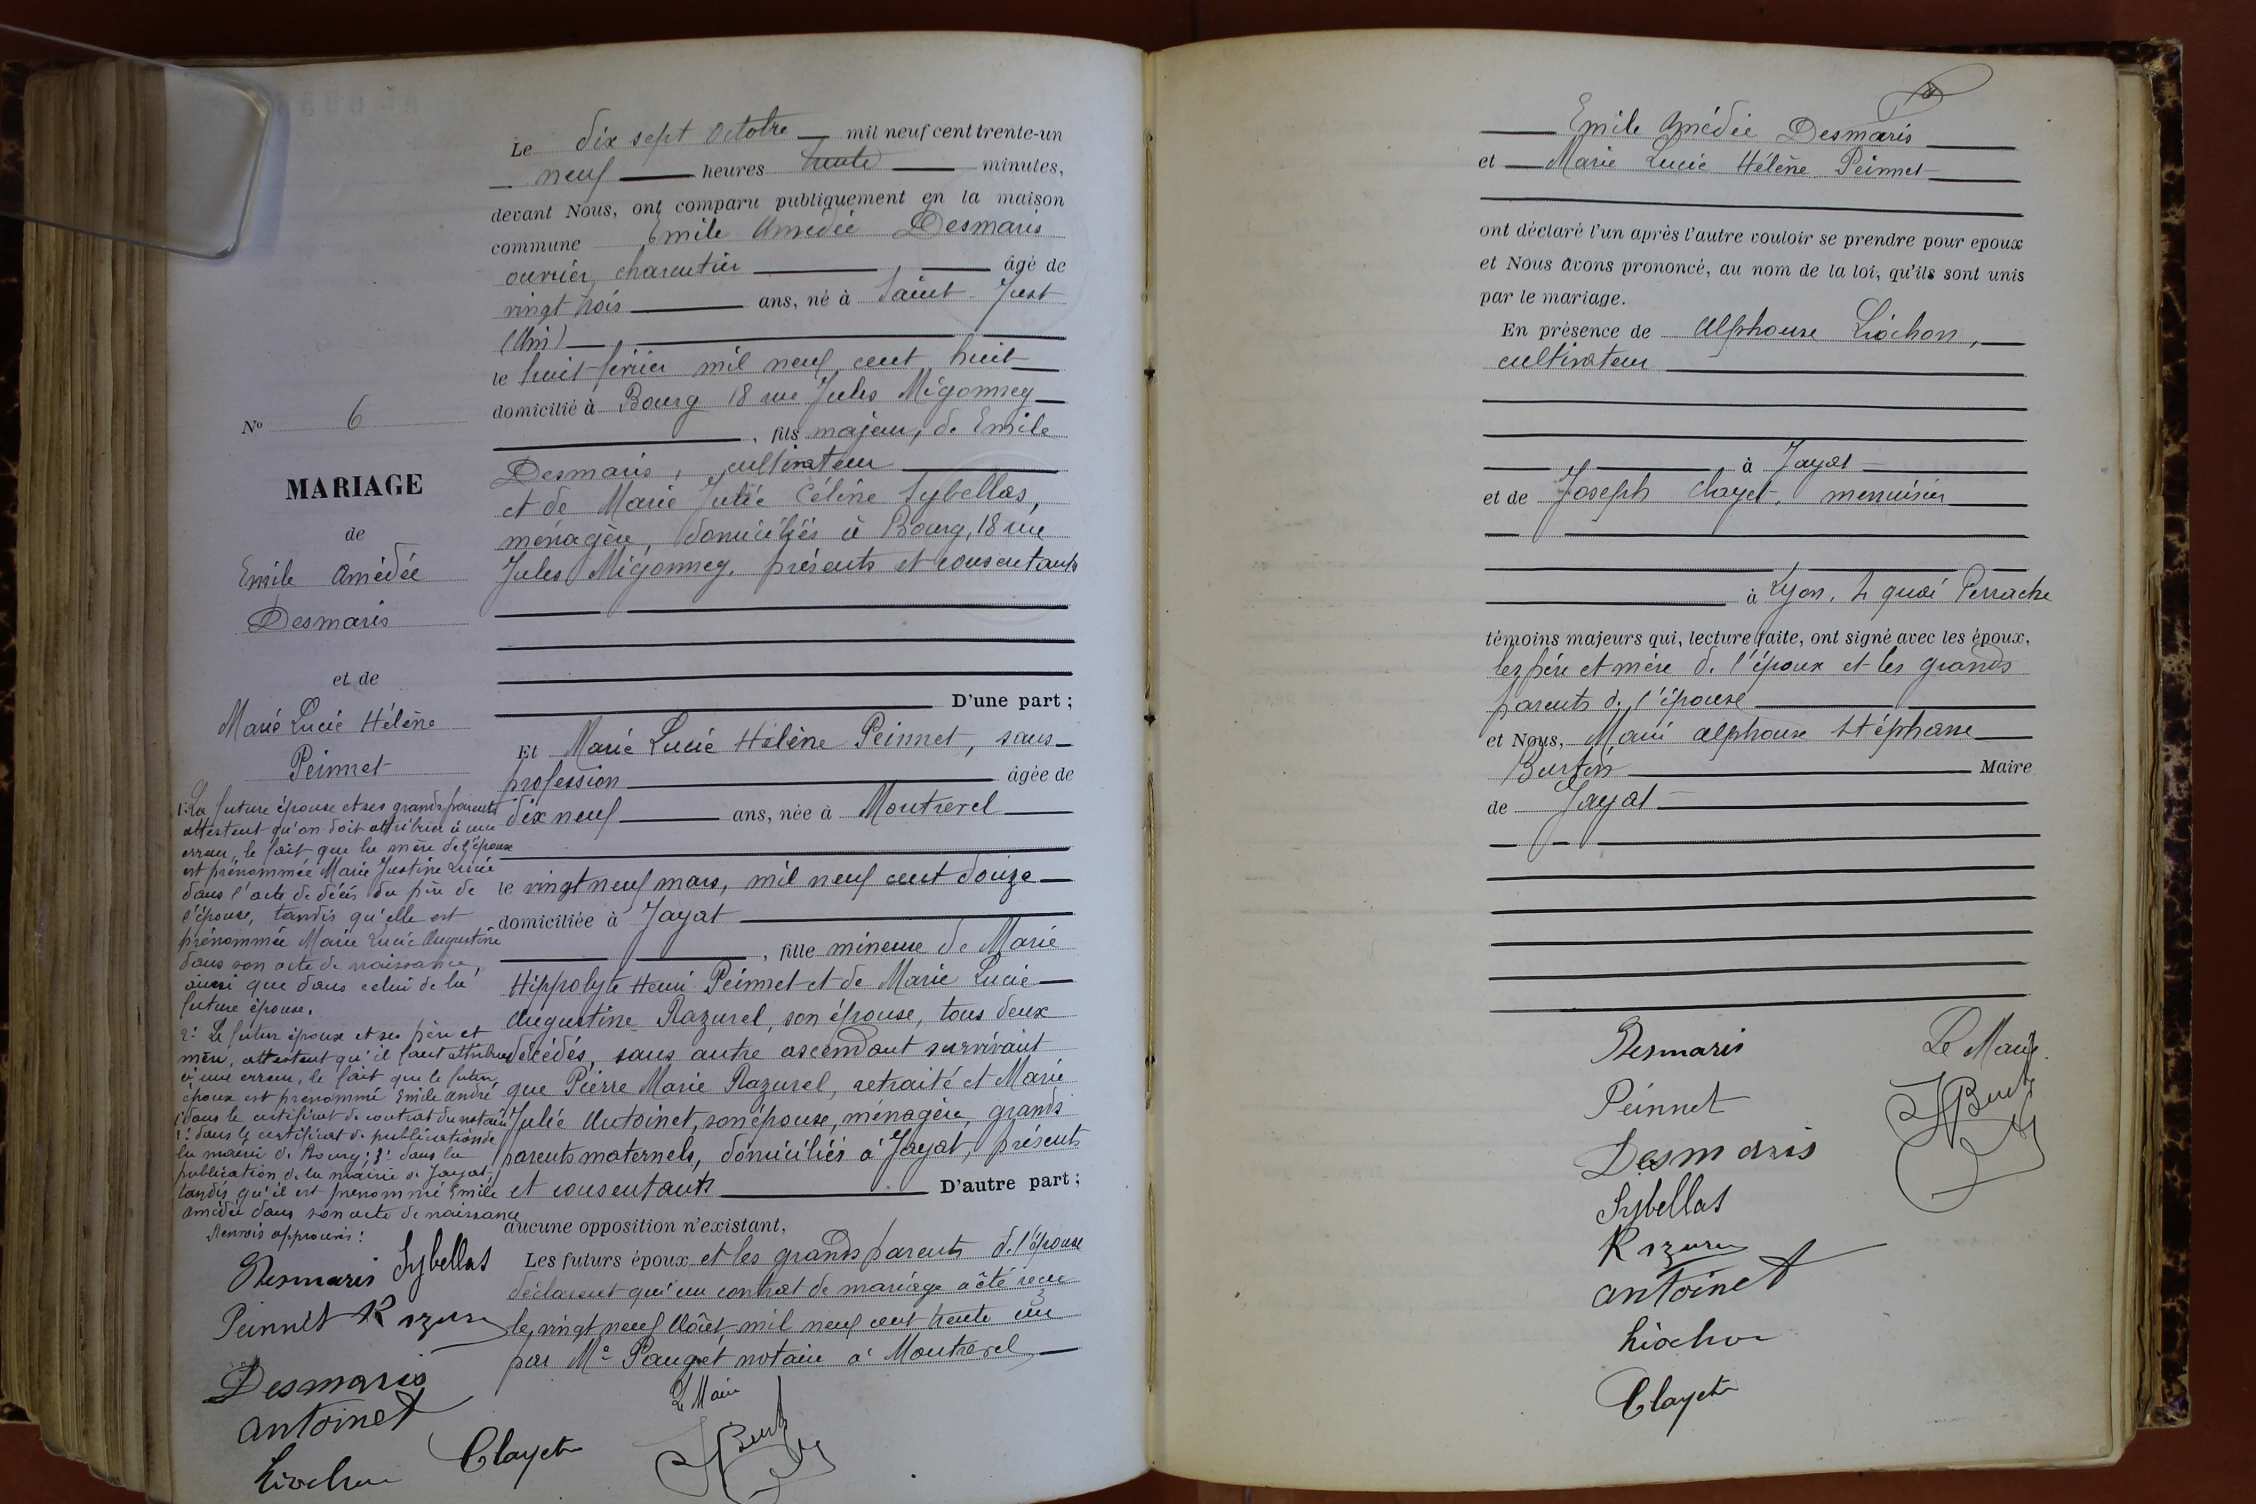 Le dix sept Octobre mil neuf cent trente-un
neuf heures trente minutes,
devant Nous, ont comparu publiquement en la maison
commune Emile Amédée Desmaris
ouvrier charcutier, âgé de
vingt trois ans, né à Saint-Just
(Ain)
le huit février mil neuf cent huit
domicilié à Bourg 18 rue Jules Migonney
, fils majeur, de Emile
Desmaris, cultivateur
et de Marie Julie Céline Sybellas,
ménagère, domiciliés à Bourg, 18 rue
Jules Migonney, présents et consentants
D'une part ;
Et Marie Lucie Hélène Peinnet, sans
profession âgée de
dix neuf ans, née à Montrevel
le vingt neuf mars, mil neuf cent douze
domiciliée à Jayat
, fille mineure de Marie
Hippolyte Henri Peinnet et de Marie Lucie
Augustine Razurel, son épouse, tous deux
décédés, sans autre ascendant survivant
que Pierre Marie Razurel, retraité et Marie
Julie Antoinet, son épouse, ménagère, grands
parents maternels, domiciliés à Jayat, présents
et consentants D'autre part ;
aucune opposition n'existant,
Les futurs époux et les grands parents de l'épouse
déclarent qu'un contrat de mariage a été reçu
le vingt neuf Août mil neuf cent trente un
par Me Pauget notaire à Montrevel
Le Maire
No 6
MARIAGE
de
Emile Amédée
Desmaris
et de
Marie Lucie Hélène
Peinnet
1° La future épouse et ses grands parents
attestent qu'on doit attribuer à une
erreur, le fait que la mère de l'épouse
est prénommée Marie Justine Lucie
dans l'acte de décès du père de
l'épouse, tandis qu'elle est
prénommée Marie Lucie Augustine
dans son acte de naissance,
ainsi que dans celui de la
future épouse.
2° Le futur époux et ses père et
mère, attestent qu'il faut attribuer
à une erreur, le fait que le futur
époux est prénommé Emile André
1° dans le certificat de contrat du notaire
2° dans le certificat de publication de
la mairie de Bourg; 3° dans la
publication de la mairie de Jayat,
tandis qu'il est prénommé Emile
Amédée dans son acte de naissance
Renvois approuvés :
Desmaris Sybellas
Peinnet Razurel
Desmaris
Antoinet
Liochon Clayet
Emile Amédée Desmaris
et Marie Lucie Hélène Peinnet
ont déclaré l'un après l'autre vouloir se prendre pour epoux
et Nous avons prononcé, au nom de la loi, qu'ils sont unis
par le mariage.
En présence de Alphonse Liochon,
cultivateur
à Jayat
et de Joseph Clayet, menuisier
à Lyon, 4 quai Perrache
témoins majeurs qui, lecture faite, ont signé avec les époux,
les père et mère de l'époux et les grands
parents de l'épouse
et Nous, Marie Alphonse Stéphane
Burtin Maire
de Jayat
Desmaris
Le Maire
Peinnet
Desmaris
Sybellas
Razurel
Antoinet
Liochon
Clayet